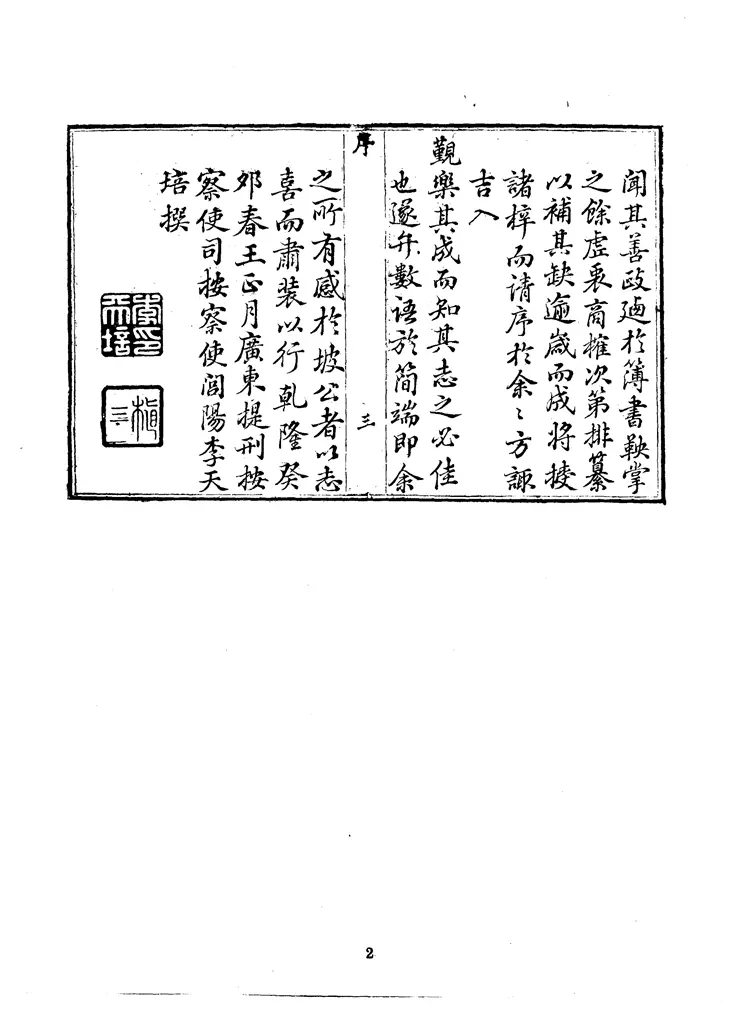 聞其善政廼於簿書鞅掌
之餘虛衷商榷次第排纂
以補其缺逾歲而成將授
諸梓而請序於余〻方諏
吉入
覲樂其成而知其志之必佳
也遂弁數語於簡端即余
序
三
之所有感於坡公者以志
喜而肅裝以行乾隆癸
夘春王正月廣東提刑按
察使司按察使閭陽李天
培撰
李天培印
三槐
2